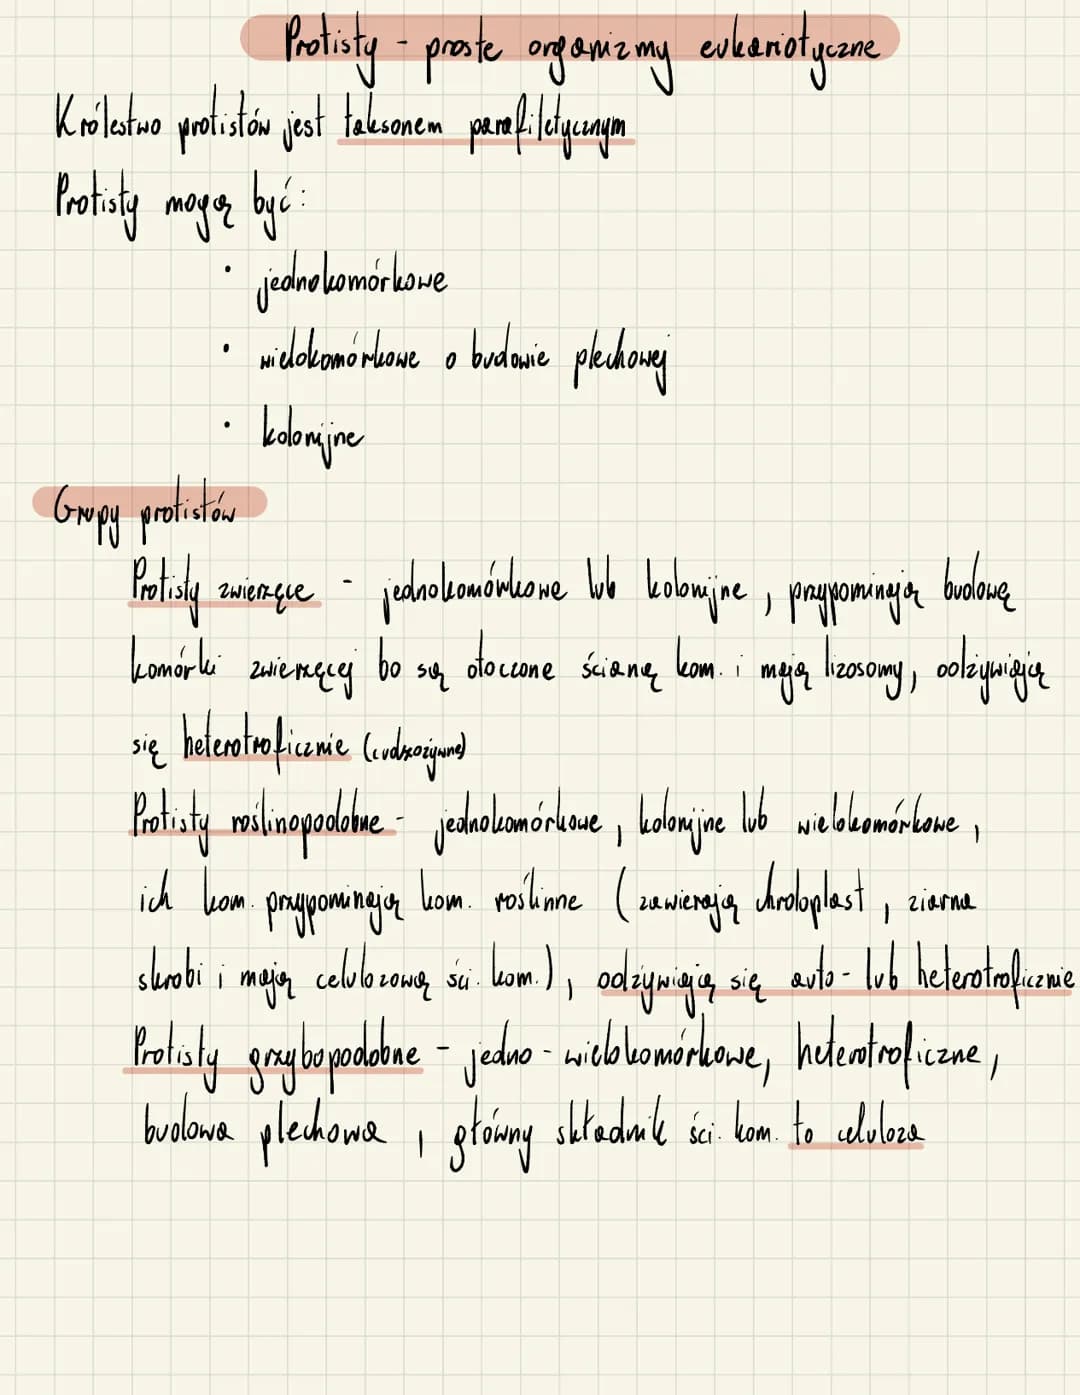 Protisty - proste organizmy eukariotyczne
Królestwo protistów jest taksonem parafiletycznym
Protisty mogą być:
• jednokomórkowe
• wielokomórkowe o budowie plechowej
• kolonijne
Grupy protistów
Protisty zwierzęce - jednokomówkowe lub kolonijne, przypominają budową
komórki zwierzęcej bo są otoczone ścianą kom. i mają lizosomy, odżywiają
się heterotroficznie (cudzożywne)
Protisty roślinopodobne - jednokomórkowe, kolonijne lub wielokomórkowe,
ich kom. przypominają kom. roślinne (zawierają chroloplast, ziarna
skrobi i mają celulozową ści. kom.), odżywiają się auto- lub heterotroficznie
Protisty grzybopodobne - jedno - wielokomórkowe, heterotroficzne,
budowa plechowa, główny składnik ści. kom. to celuloza